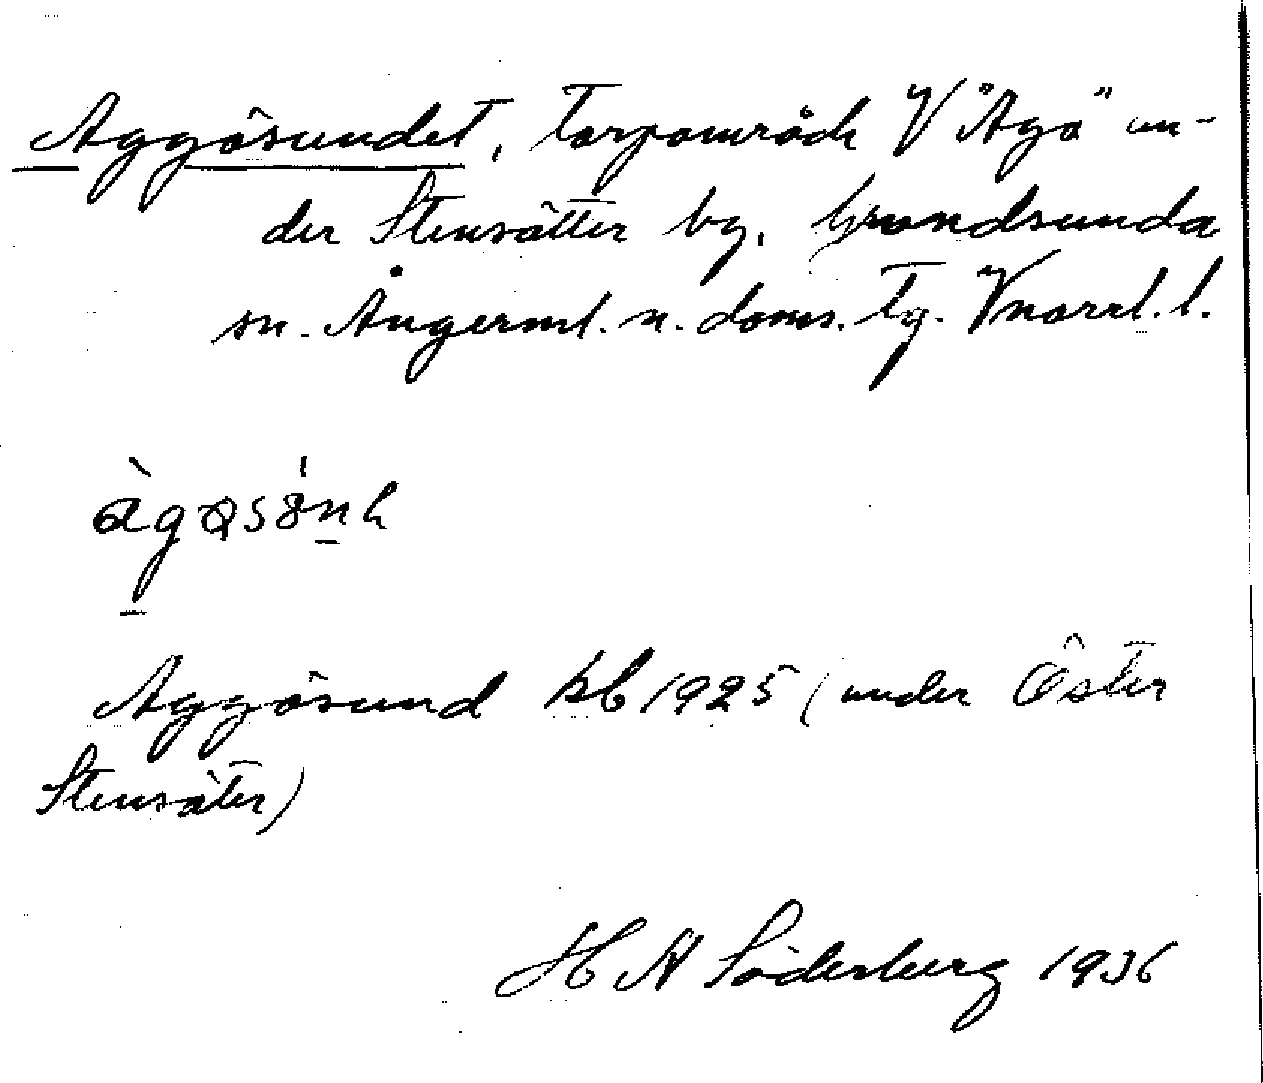 Aggösundet, torpområde V "Agö" un-
der Stensätter by, Grundsunda
sn. Ångerml. n. doms. tg. Vnorrl. l.
Aggösund kb 1925 (under Öster
Stensäter)
H A Söderberg 1936